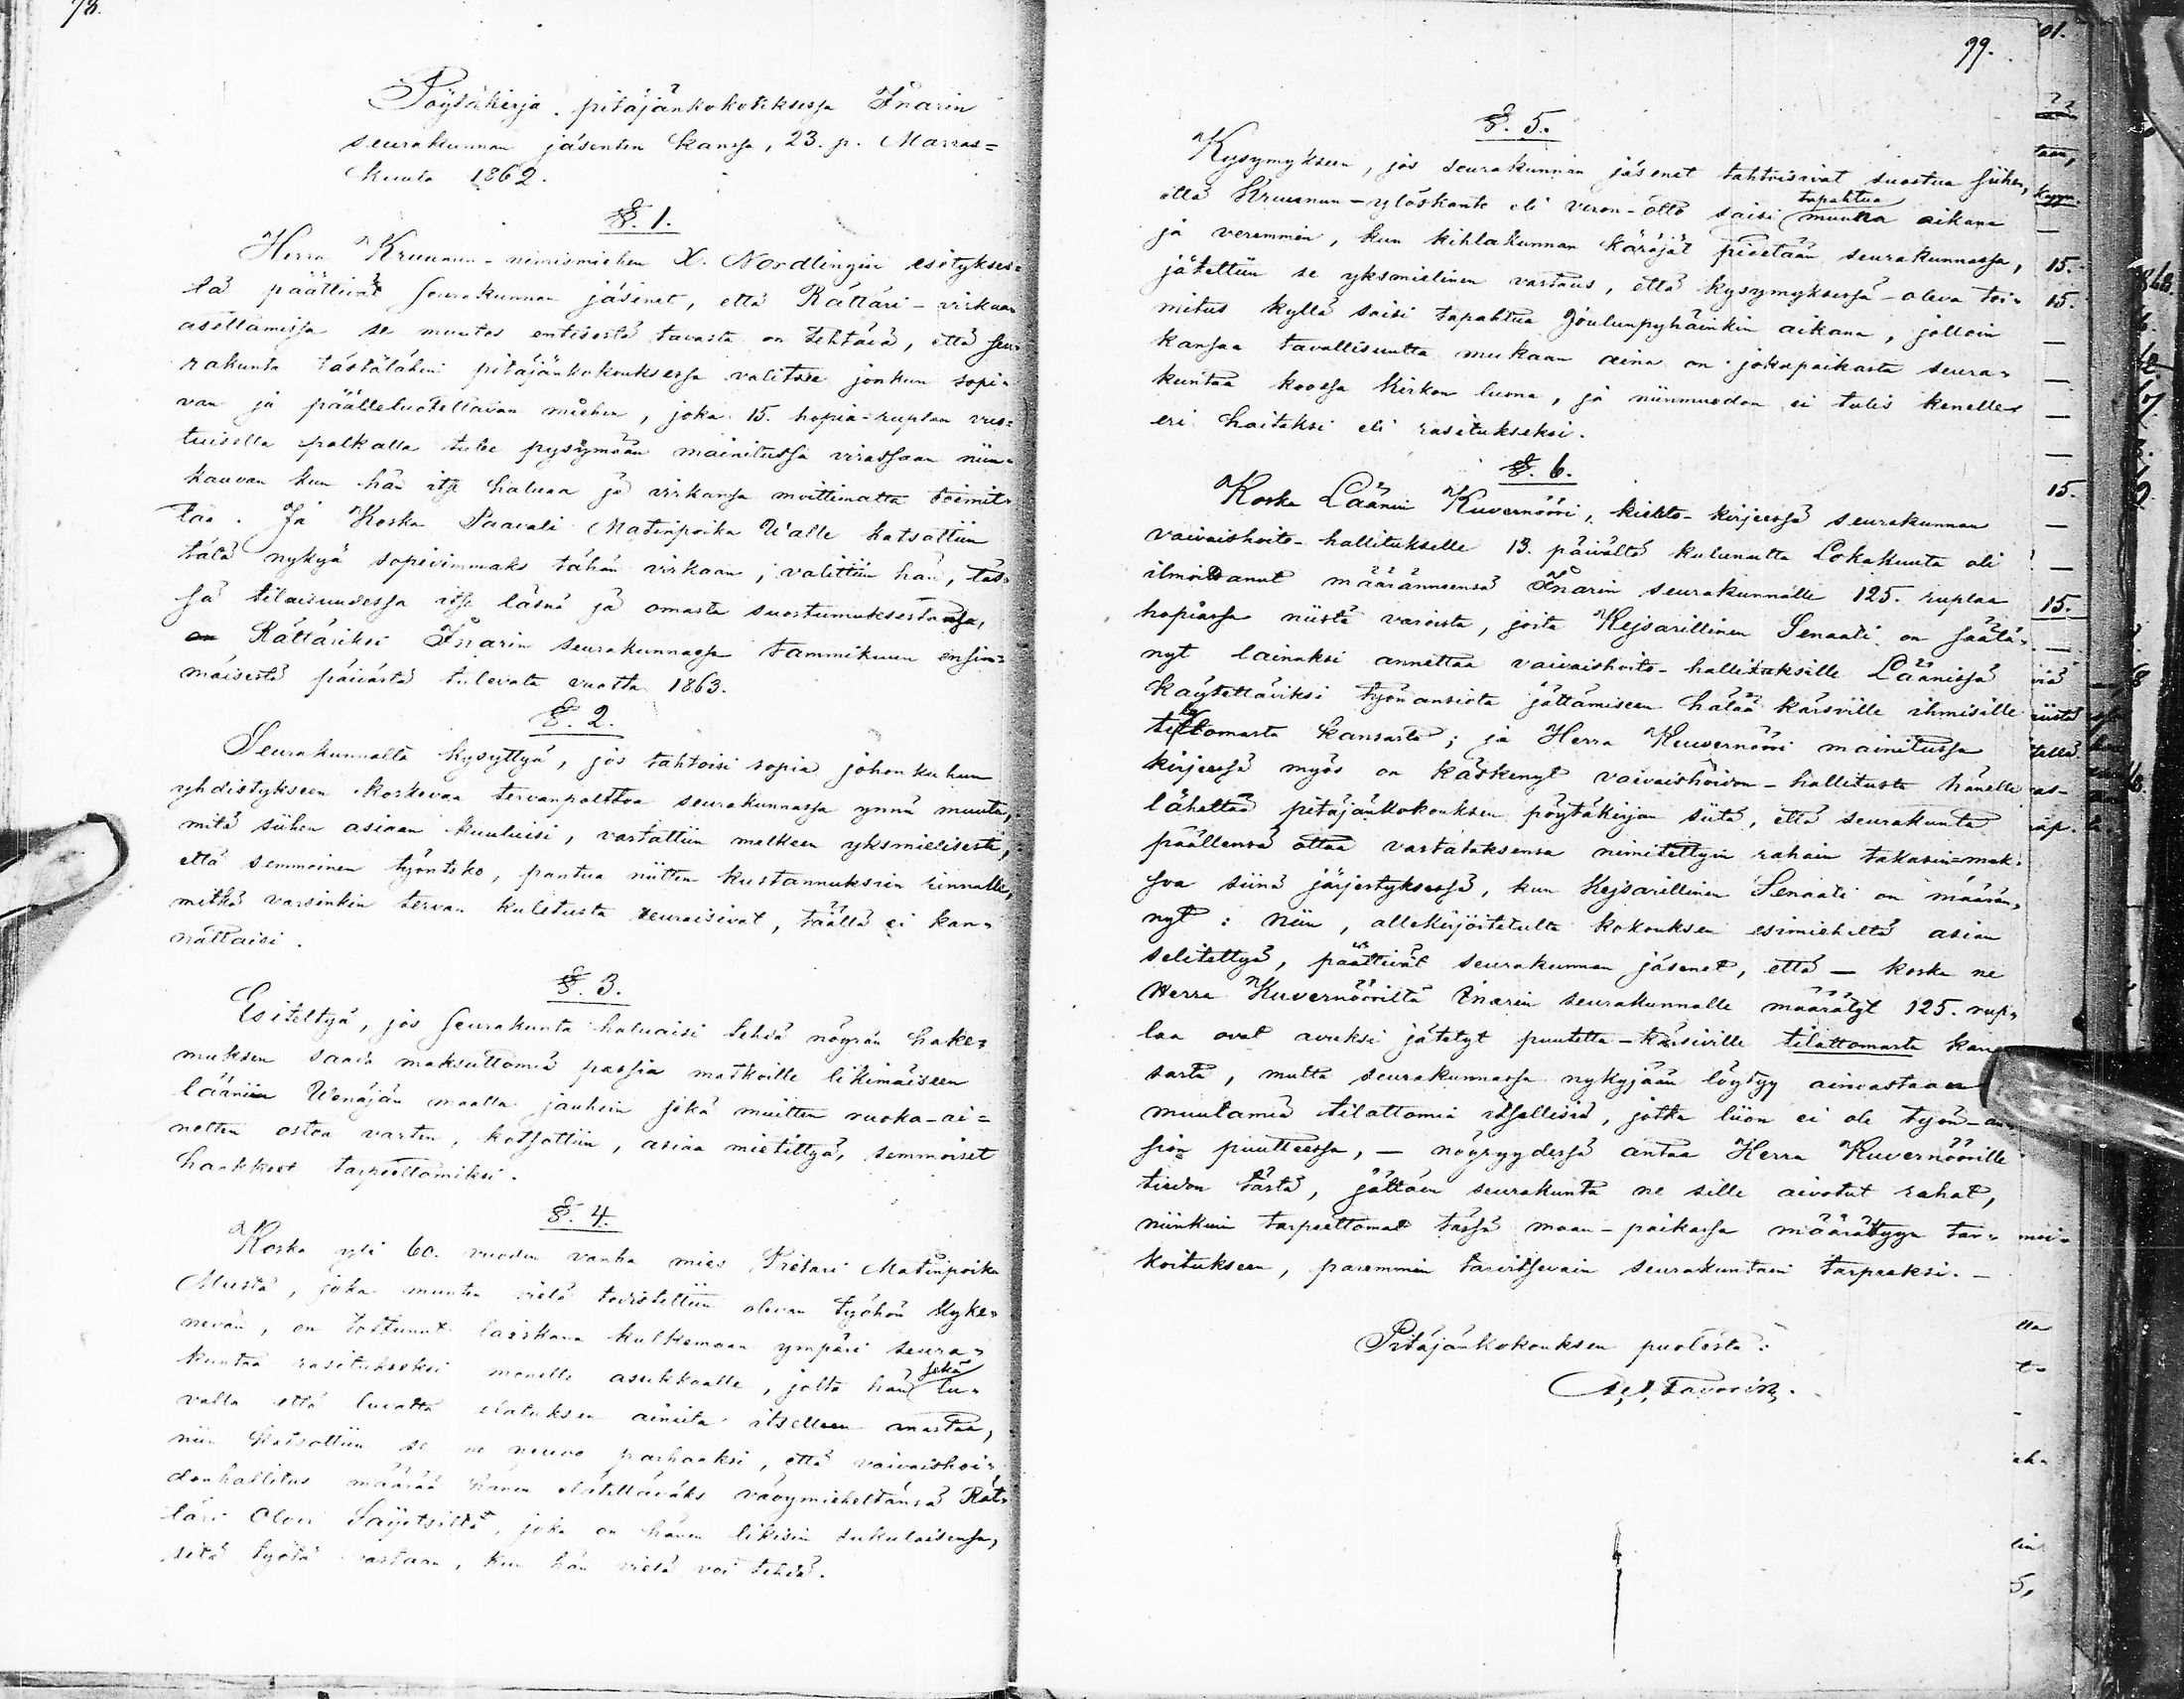 78.
Pöytäkirja pitäjänkokouksessa Inarin
seurakunnan jäsenten kanssa, 23. p. Marras=
kuuta 1862.
§. 1.
Herra Kruunun-nimismiehen X. Nordlingin esitykses=
tä päättivät seurakunnan jäsenet, että Rättäri-virkaan
asettamissa se muutos entisestä tavasta on tehtävä, että seu=
rakunta tästälähin pitäjänkokouksessa valitsee jonkun sopi=
van ja päälleluotettavan miehen, joka 15. hopia-ruplan vuo=
tuisella palkalla tulee pysymään mainitussa virassaan niin=
kauvan kun hän itse haluaa ja virkansa moittimatta toimit=
taa. Ja Koska Paavali Matinpoika Walle katsottiin
tätä nykyä sopivimmaks tähän virkaan, valittiin hän, täs=
sä tilaisuudessa itse läsnä ja omasta suostumuksestansa,
Rättäriksi Inarin seurakunnassa tammikuun ensim=
mäisestä päivästä tulevata vuotta 1863.
§. 2.
Seurakunnalta kysyttyä, jos tahtoisi sopia johonkuhun
yhdistykseen koskevaa tervanpolttoa seurakunnassa ynnä muuta,
mitä siihen asiaan kuuluisi, vastattiin melkeen yksmielisesti,
että semmoinen työnteko, pantua niitten kustannuksien rinnalle,
mitkä varsinkin tervan kuletusta seuraisivat, täällä ei kan=
nattaisi.
§. 3.
Esiteltyä, jos seurakunta haluaisi tehdä nöyrän hake=
muksen saada maksuttomia passia matkoille likimäiseen
lääniin Wenäjän maalla jauhoin sekä muitten ruoka-ai=
netten ostoa varten, katsottiin, asiaa mietittyä, semmoiset
hankkeet tarpeettomiksi.
§. 4.
Koska yli 60. vuoden vanha mies Pietari Matinpoika
Musta, joka muuten vielä todistettiin olevan työhön kyke=
nevän, on tottunut laiskana kulkemaan ympäri seura=
kuntaa rasitukseksi monelle asukkaalle, jolta hän sekä lu=
valla että luvatta elatuksen aineita itselleen anastaa,
niin katsottiin se neuvo parhaaksi, että vaivaishoi=
donhallitus määrää hänen elätettäväks vävymieheltänsä Rät=
täri Olovi Sayetsiltä, joka on hänen likisin sukulaisensa,
sitä työtä vastaan, kun hän vielä voi tehdä.
99.
§. 5.
Kysymykseen, jos seurakunnan jäsenet tahtoisivat suostua siihen,
että Kruunun-ylöskanto eli veron-otto saisi tapahtua muulla aikana
ja veremmin, kun kihlakunnan käräjät pidetään seurakunnassa,
jätettiin se yksmielinen vastaus, että kysymyksessä-oleva toi=
mitus kyllä saisi tapahtua Joulunpyhäinkin aikana, jolloin
kansaa tavallisuutta mukaan aina on jokapaikasta seura=
kuntaa koossa kirkon luona, ja niinmuodon ei tulis kenellek
eri haitaksi eli rasitukseksi.
§. 6.
Koska Läänin Kuvernööri, kierto-kirjeessä seurakunnan
vaivaishoito-hallitukselle 13. päivältä kulunutta Lokakuuta oli
ilmoittanut määränneensä Inarin seurakunnalle 125. ruplaa
hopiassa niistä varoista, joita Kejsarillinen Senaati on säätä=
nyt lainaksi annettaa vaivaishoito-hallituksille Läänissä
käytettäviksi työnansiota jättämiseen hätää kärsiville ihmisille
tilattomasta kansasta; ja Herra Kuvernööri mainitussa
kirjeessä myös on käskenyt vaivaishoidon-hallitusta hänelle
lähettää pitäjänkokouksen pöytäkirjan siitä, että seurakunta
päällensä ottaa vastataksensa nimitettyin rahain takasin-mak=
soa siinä järjestyksessä, kun Kejsarillinen Senaati on määrän=
nyt: niin, allekirjoitetulta kokouksen esimieheltä asian
selitettyä, päättivät seurakunnan jäsenet, että — koska ne
Herra Kuvernööriltä Inarin seurakunnalle määrätyt 125. rup=
laa ovat avuksi jätetyt puutetta-kärsiville tilattomasta kan
sasta, mutta seurakunnassa nykyjään löytyy ainoastaan
muutamia tilattomia itsellisiä, jotka liion ei ole työn-an
sion puutteessa, — nöyryydessä antaa Herra Kuvernöörille
tiedon tästä, jättäen seurakunta ne sille aivotut rahat,
niinkuin tarpeettomat tässä maan-paikassa määrättyyn tar=
koitukseen, paremmin tarvitsevain seurakuntain tarpeeksi. —
Pitäjänkokouksen puolesta: